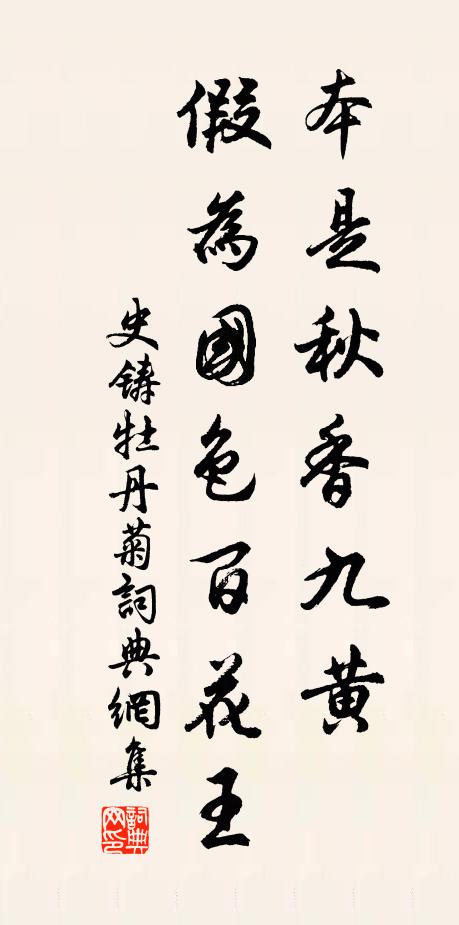 本是秋香九黄
假為國色百花王
史鑄牡丹菊詞典網集
詞典網印